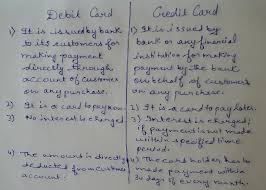 Debit Card
1) It is issued by bank
to its customers for
making payment
directly through
account of customer
on any purchase.
2) It is a card to pay now.
3) No interest is charged
4) The amount is directly
deducted from customer
account.
Credit Card
1) It is issued by
bank or any financial
institution for making
payment by the bank
on behalf of customers
on any purchase.
2) It is a card to pay later.
3) Interest is charged
if payment is not made
within specified time
period.
4) The card holder has to
made payment within
30 days of every month.